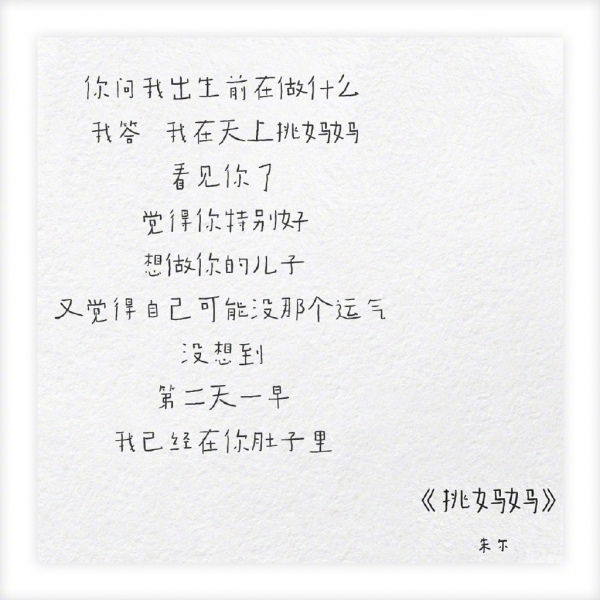 你问我出生前在做什么
我答 我在天上挑妈妈
看见你了
觉得你特别好
想做你的儿子
又觉得自己可能没那个运气
没想到
第二天一早
我已经在你肚子里
《挑妈妈》
朱尔